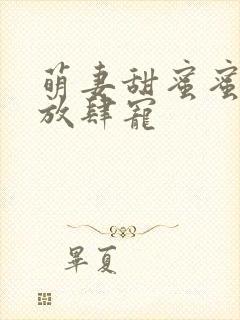 萌妻甜蜜蜜
放肆寵
畢夏